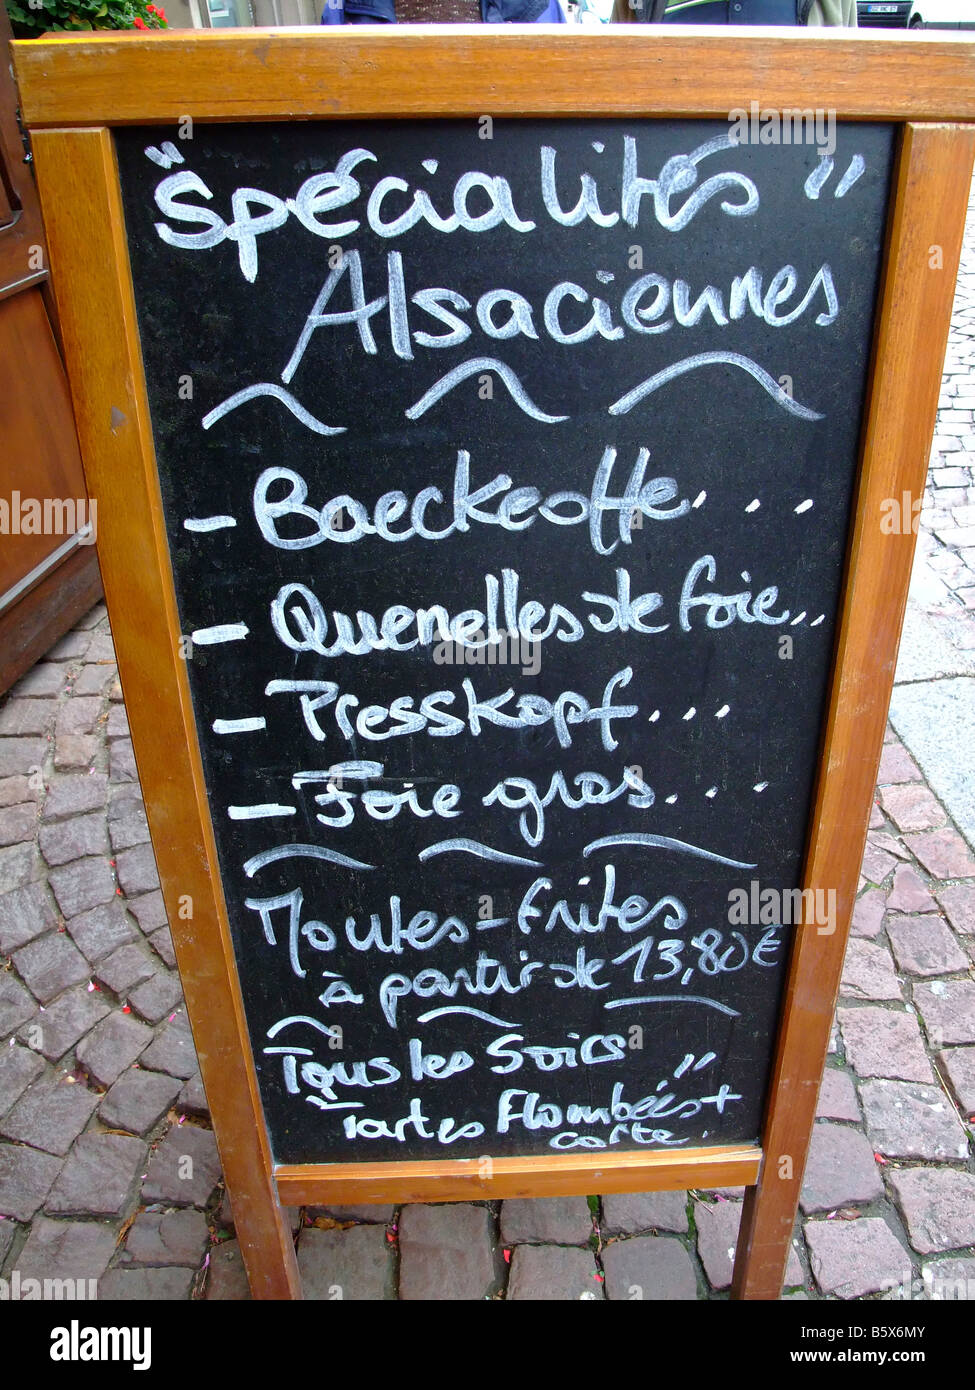 "Spécialités"
Alsaciennes
- Baeckeoffe....
- Quenelles de foie...
- Presskopf....
- Foie gras....
Moules-frites
à partir de 13,80€
Tous les Soirs
"Tartes Flambées" +
carte.
alamy
Image ID: B5X6MY
www.alamy.com